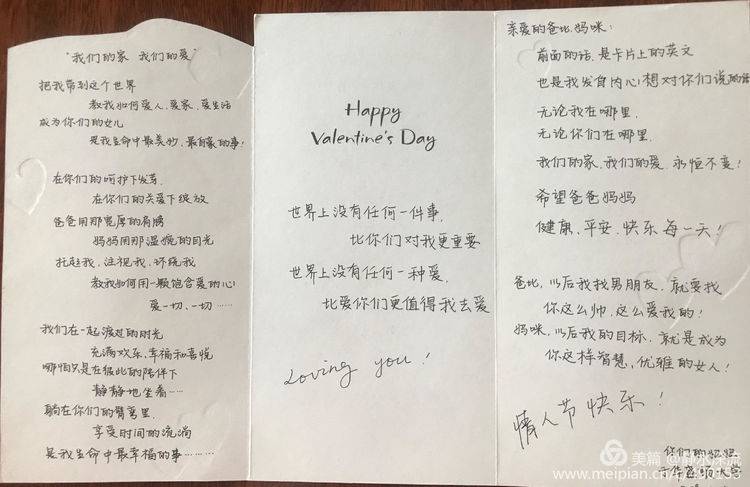 "我们的家 我们的爱"
把我带到这个世界
教我如何爱人.爱家.爱生活
成为你们的女儿
是我生命中最美妙.最自豪的事!
在你们的呵护下发芽.
在你们的关爱下绽放
爸爸用那宽厚的肩膀
妈妈用那温婉的目光
托起我.注视我.环绕我
教我如何用一颗饱含爱的心
爱一切.一切……
我们在一起渡过的时光
充满欢乐.幸福和喜悦
哪怕只是在彼此的陪伴下
静静地坐着……
躺在你们的臂弯里.
享受时间的流淌
是我生命中最幸福的事………
Happy
Valentine's Day
世界上没有任何一件事.
比你们对我更重要
世界上没有任何一种爱.
比爱你们更值得我去爱
Loving you!
亲爱的爸比.妈咪:
前面的话.是卡片上的英文
也是我发自内心想对你们说的话
无论我在哪里.
无论你们在哪里.
我们的家.我们的爱.永恒不变!
希望爸爸妈妈
健康.平安.快乐每一天!
爸比.以后我找男朋友.就要找
你这么帅.这么爱我的!
妈咪.以后我的目标.就是成为
你这样智慧.优雅的女人!
情人节快乐!
你们的
美篇
www.meipian.cn